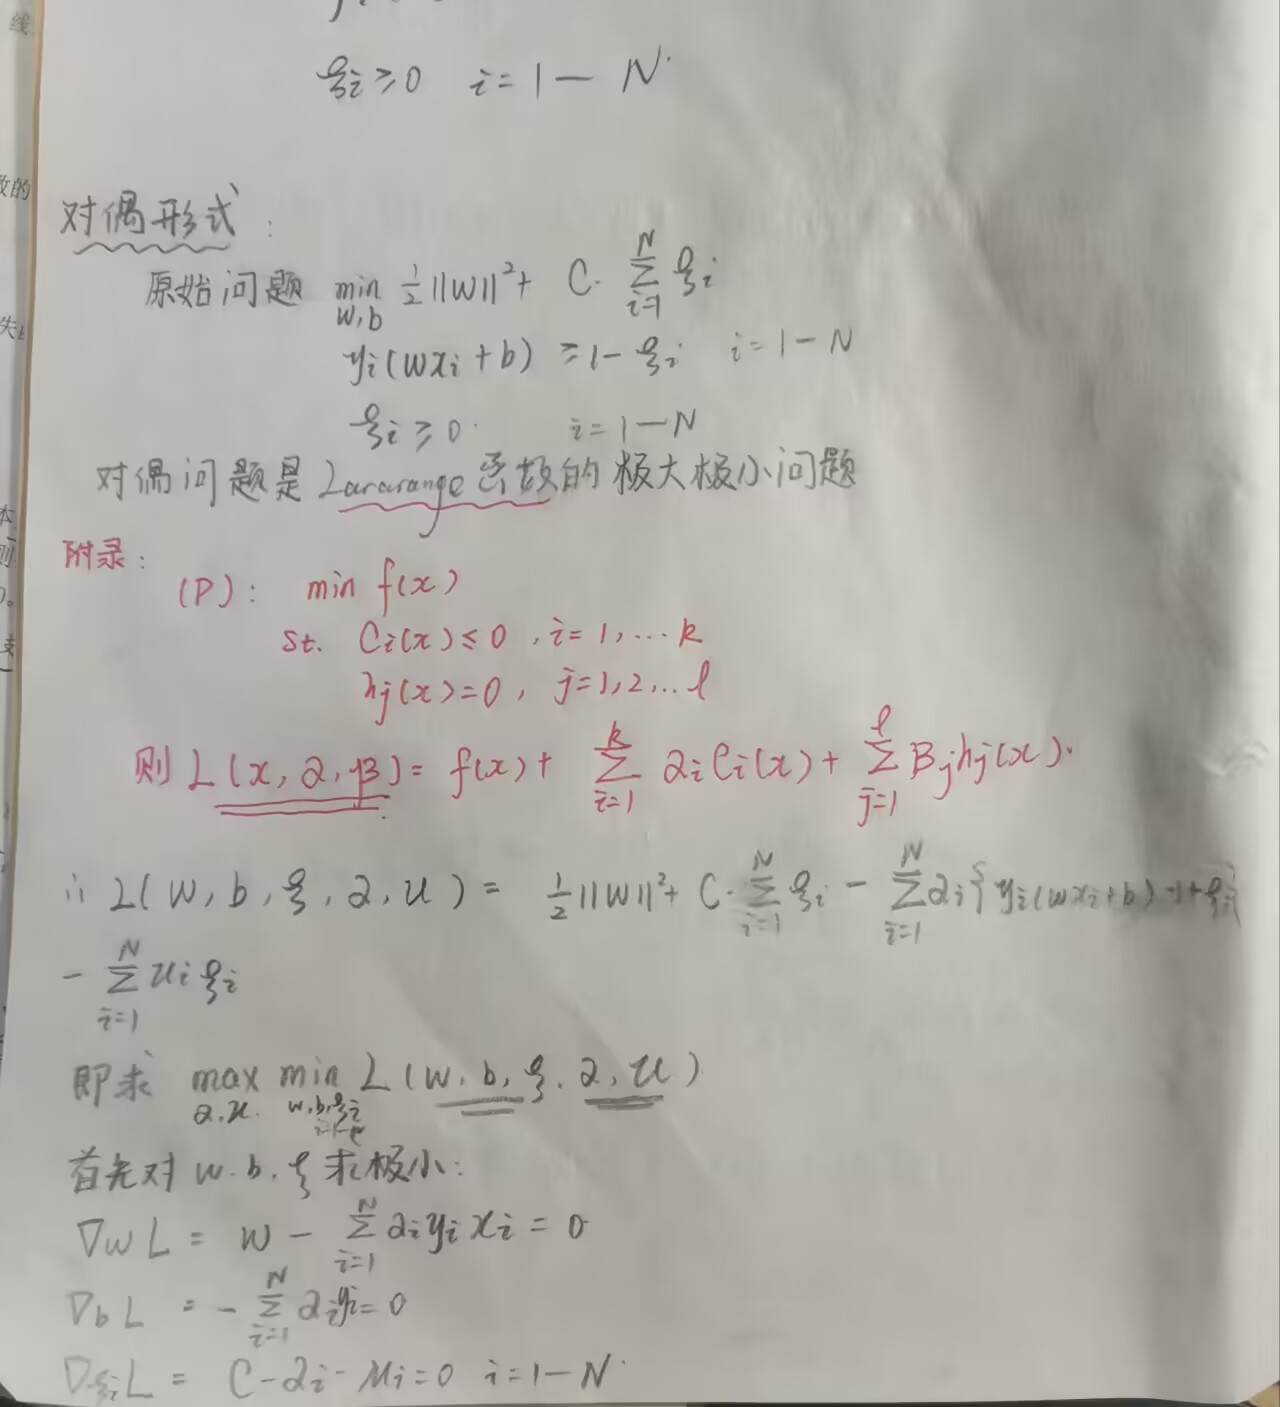 ξi ≥ 0 i = 1 — N
对偶形式：
原始问题 min w,b 1/2 ||w||² + C· Σ_{i=1}^{N} ξi
yi(wxi + b) ≥ 1 - ξi i = 1 — N
ξi ≥ 0 i = 1 — N
对偶问题是 Lararange 函数的极大极小问题
附录：
(P)： min f(x)
St. Ci(x) ≤ 0 , i = 1, ... k
hj(x) = 0 , j = 1, 2, ... l
则 L(x, α, β) = f(x) + Σ_{i=1}^{k} αi Ci(x) + Σ_{j=1}^{l} βj hj(x).
∴ L(w, b, ξ, α, u) = 1/2 ||w||² + C· Σ_{i=1}^{N} ξi - Σ_{i=1}^{N} αi{yi(wxi+b) -1+ξi}
- Σ_{i=1}^{N} ui ξi
即求 max α,u. min w,b,ξi L(w, b, ξ, α, u)
首先对 w. b. ξ 求极小：
∇w L = w - Σ_{i=1}^{N} αi yi xi = 0
∇b L = - Σ_{i=1}^{N} αi yi = 0
∇ξi L = C - αi - μi = 0 i = 1 — N